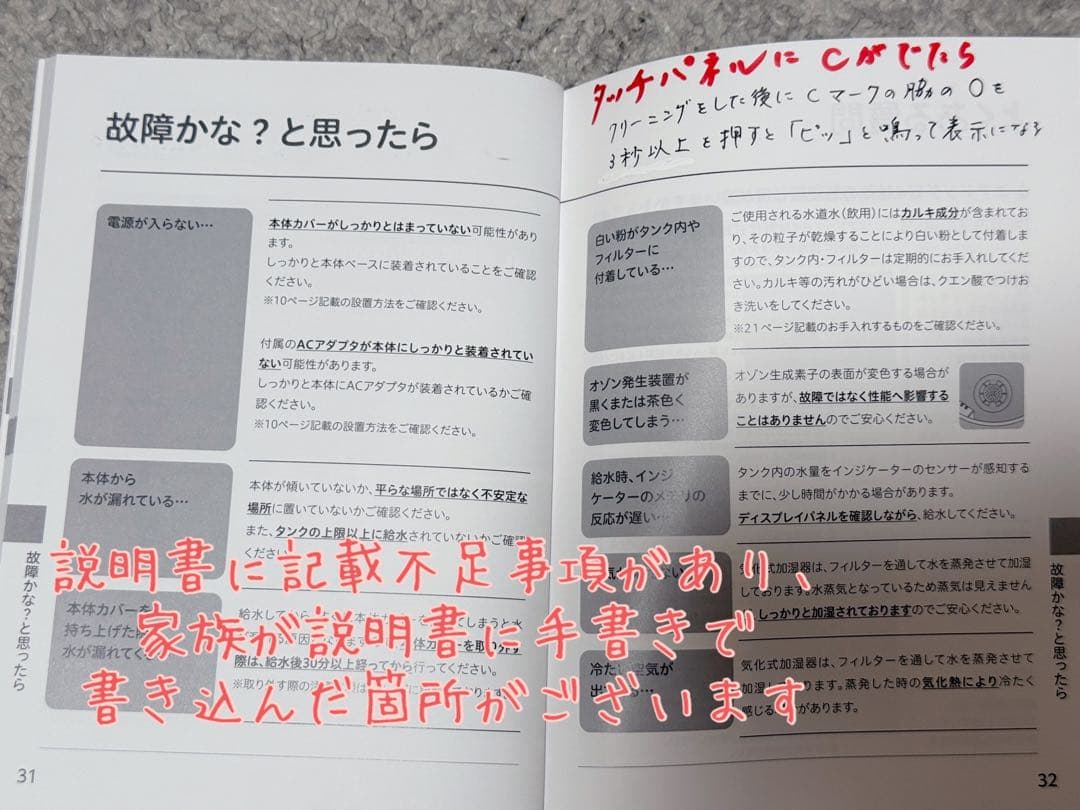 故障かな?と思ったら
電源が入らない…
本体カバーがしっかりとはまっていない可能性があり
ます。
しっかりと本体ベースに装着されていることをご確認
ください。
※10ページ記載の設置方法をご確認ください。
付属のACアダプタが本体にしっかりと装着されてい
ない可能性があります。
しっかりと本体にACアダプタが装着されているかご確
認ください。
※10ページ記載の設置方法をご確認ください。
本体から
水が漏れている…
本体が傾いていないか、平らな場所ではなく不安定な
場所に置いていないかご確認ください。
また、タンクの上限以上に給水されていないかご確認
ください
本体カバーを
持ち上げた
水が漏れて
給水して
際は、給水後30分以上経ってから行ってください。
※取り外す際の
故障かな?と思ったら
31
タッチパネルに Cがでたら
クリーニングをした後に Cマークの脇の Oを
3秒以上を押すと「ピッ」と鳴って表示になる
白い粉がタンク内や
フィルターに
付着している…
ご使用される水道水(飲用)にはカルキ成分が含まれてお
り、その粒子が乾燥することにより白い粉として付着しま
すので、タンク内・フィルターは定期的にお手入れしてくだ
さい。カルキ等の汚れがひどい場合は、クエン酸でつけお
き洗いをしてください。
※21ページ記載のお手入れするものをご確認ください。
オゾン発生装置が
黒くまたは茶色く
変色してしまう…
オゾン生成素子の表面が変色する場合が
ありますが、故障ではなく性能へ影響する
ことはありませんのでご安心ください。
給水時、インジ
ケーターのメモリの
反応が遅い…
タンク内の水量をインジケーターのセンサーが感知する
までに、少し時間がかかる場合があります。
ディスプレイパネルを確認しながら、給水してください。
気化式加湿器は、フィルターを通して水を蒸発させて加湿
しております。水蒸気となっているため蒸気は見えません
しっかりと加湿されておりますのでご安心ください。
冷たい空気が
気化式加湿器は、フィルターを通して水を蒸発させて
加湿しております。蒸発した時の気化熱により冷たく
感じる があります。
故障かな?と思ったら
32
説明書に記載不足事項があり、
家族が説明書に手書きで
書き込んだ箇所がございます